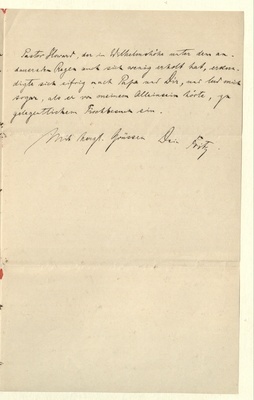 Pastor Howard, der in Wilhelmshöhe unter dem an-
dauernden Regen auch sich wenig erholt hat, erkun-
digte sich eifrig nach Papa und Dir, und lud mich
sogar, als er von meinem Alleinsein hörte, zu
gelegentlichem ein.
Mit herzl. Grüssen Dein Fritz